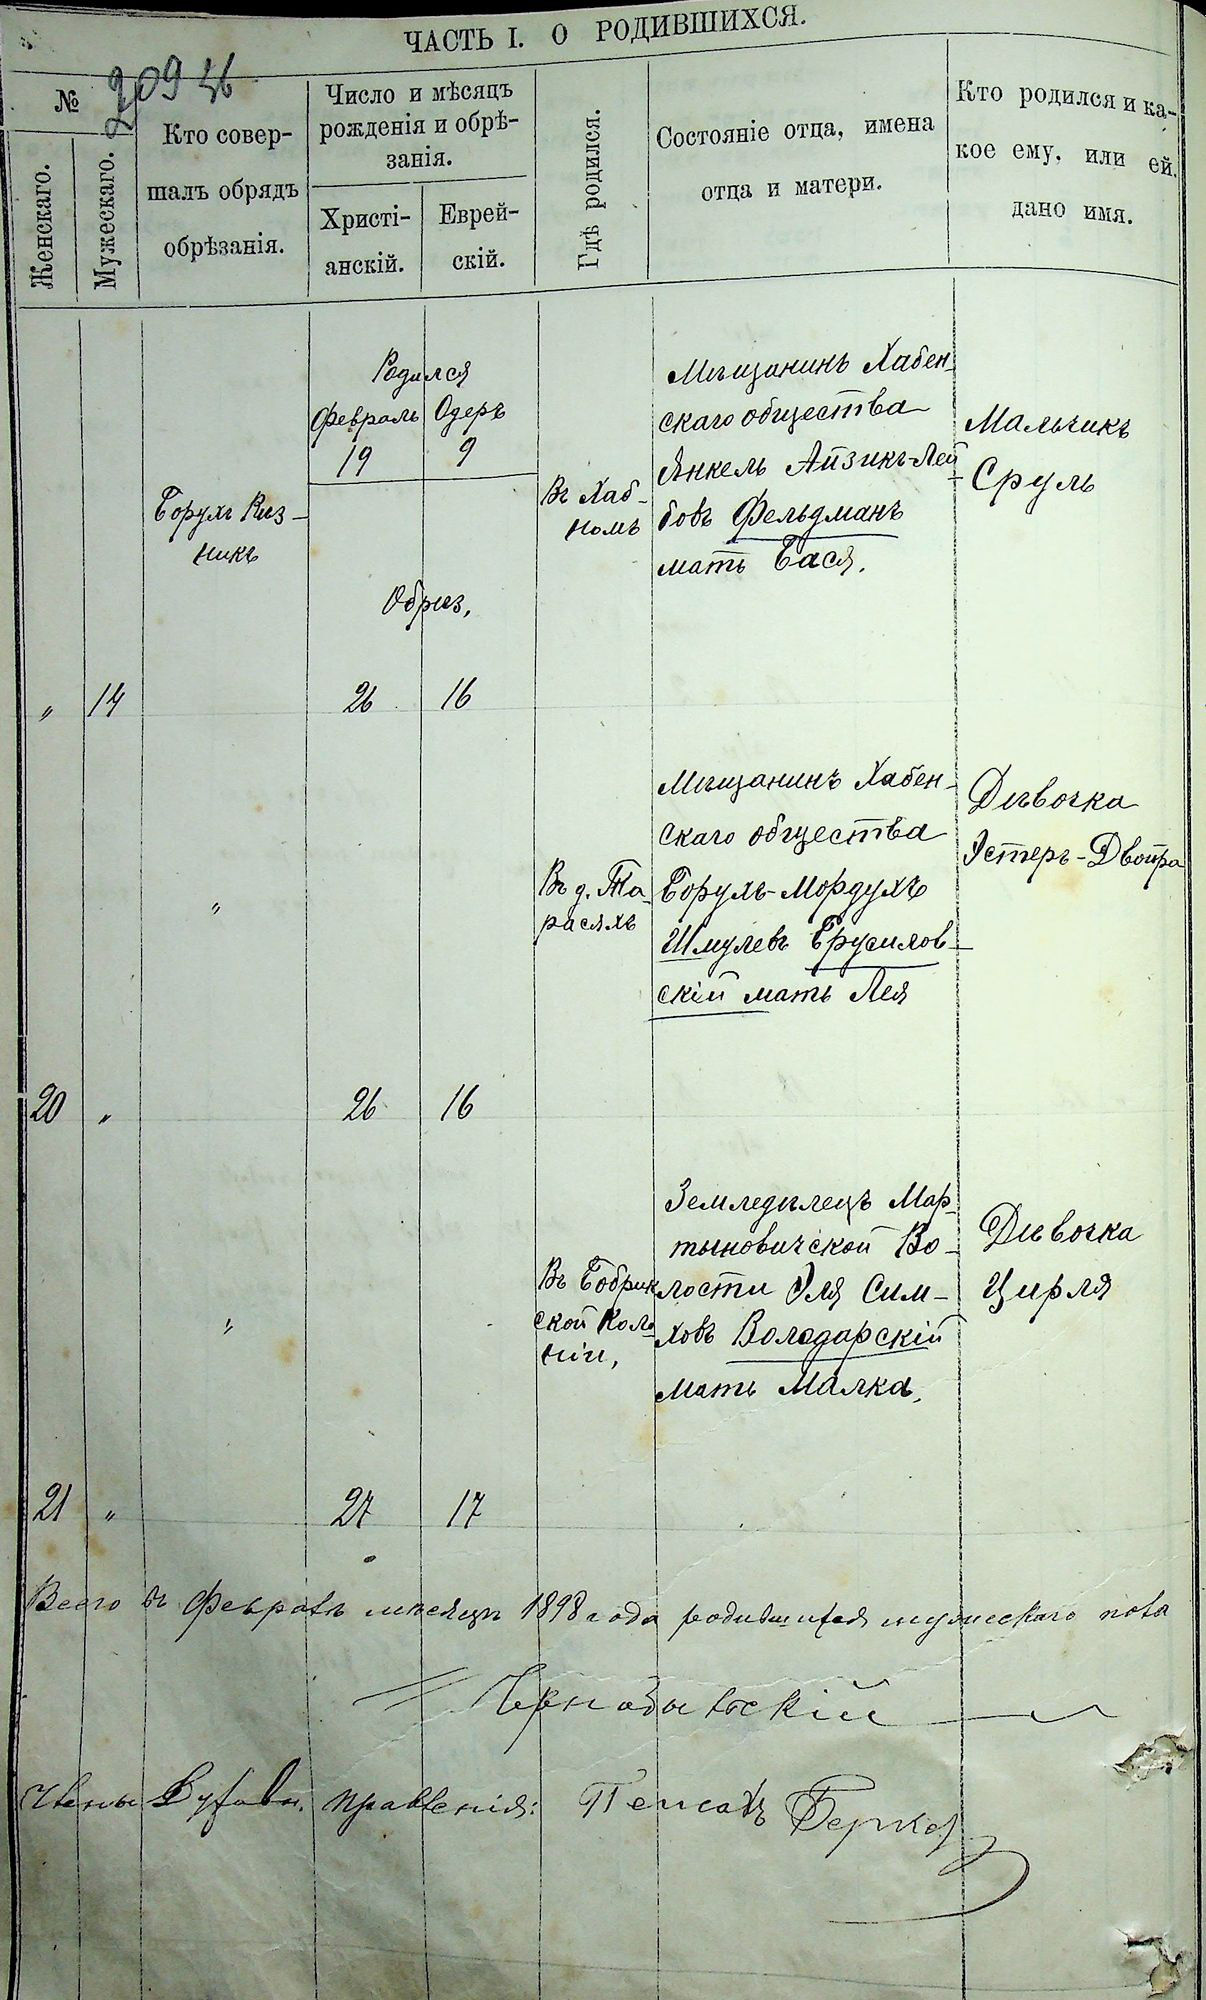 ЧАСТЬ I. О РОДИВШИХСЯ.
209 46
№
Женскаго.
Мужескаго.
Кто совер-
шалъ обрядъ
обрѣзанія.
Число и мѣсяцъ
рожденія и обрѣ-
занія.
Христі-
анскій.
Еврей-
скій.
Гдѣ родился.
Состояніе отца, имена
отца и матери.
Кто родился и ка-
кое ему, или ей,
дано имя.
„ 14
Борухъ Рѣз-
никъ
Родился
Февраль Одеръ
19 9
Обрѣз,
26 16
Въ Хаб-
номъ
Мѣщанинъ Хабен-
скаго общества
Янкель Айзикъ-Лей-
бовъ Фельдманъ
мать Бася.
Мальчикъ
Сруль
20 „
„
26 16
Въ д. Та-
расяхъ
Мѣщанинъ Хабен-
скаго общества
Борухъ-Мордухъ
Шмулевъ Ерусилов-
скій мать Лея
Дѣвочка
Эстеръ-Двойра
21 „
„
27 17
Въ Бобрин
ской Коло-
ніи,
Земледѣлецъ Мар-
тыновичской Во-
лости Эля Сим-
ховъ Володарскій
мать Малка.
Дѣвочка
Цирля
Всего въ Февралѣ мѣсяцѣ 1898 года родившихся мужескаго пола
Чернобыльскій
Члены Духовн. правленія: Пейсахъ Берков